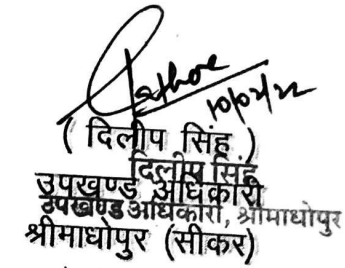 Rathore
10/02/22
( दिलीप सिंह )
दिलीप सिंह
उपखण्ड अधिकारी
उपखण्ड अधिकारी, श्रीमाधोपुर
श्रीमाधोपुर (सीकर)